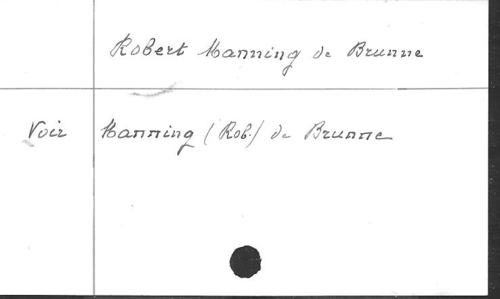 Robert Manning de Brunne
Voir Manning (Rob.) de Brunne